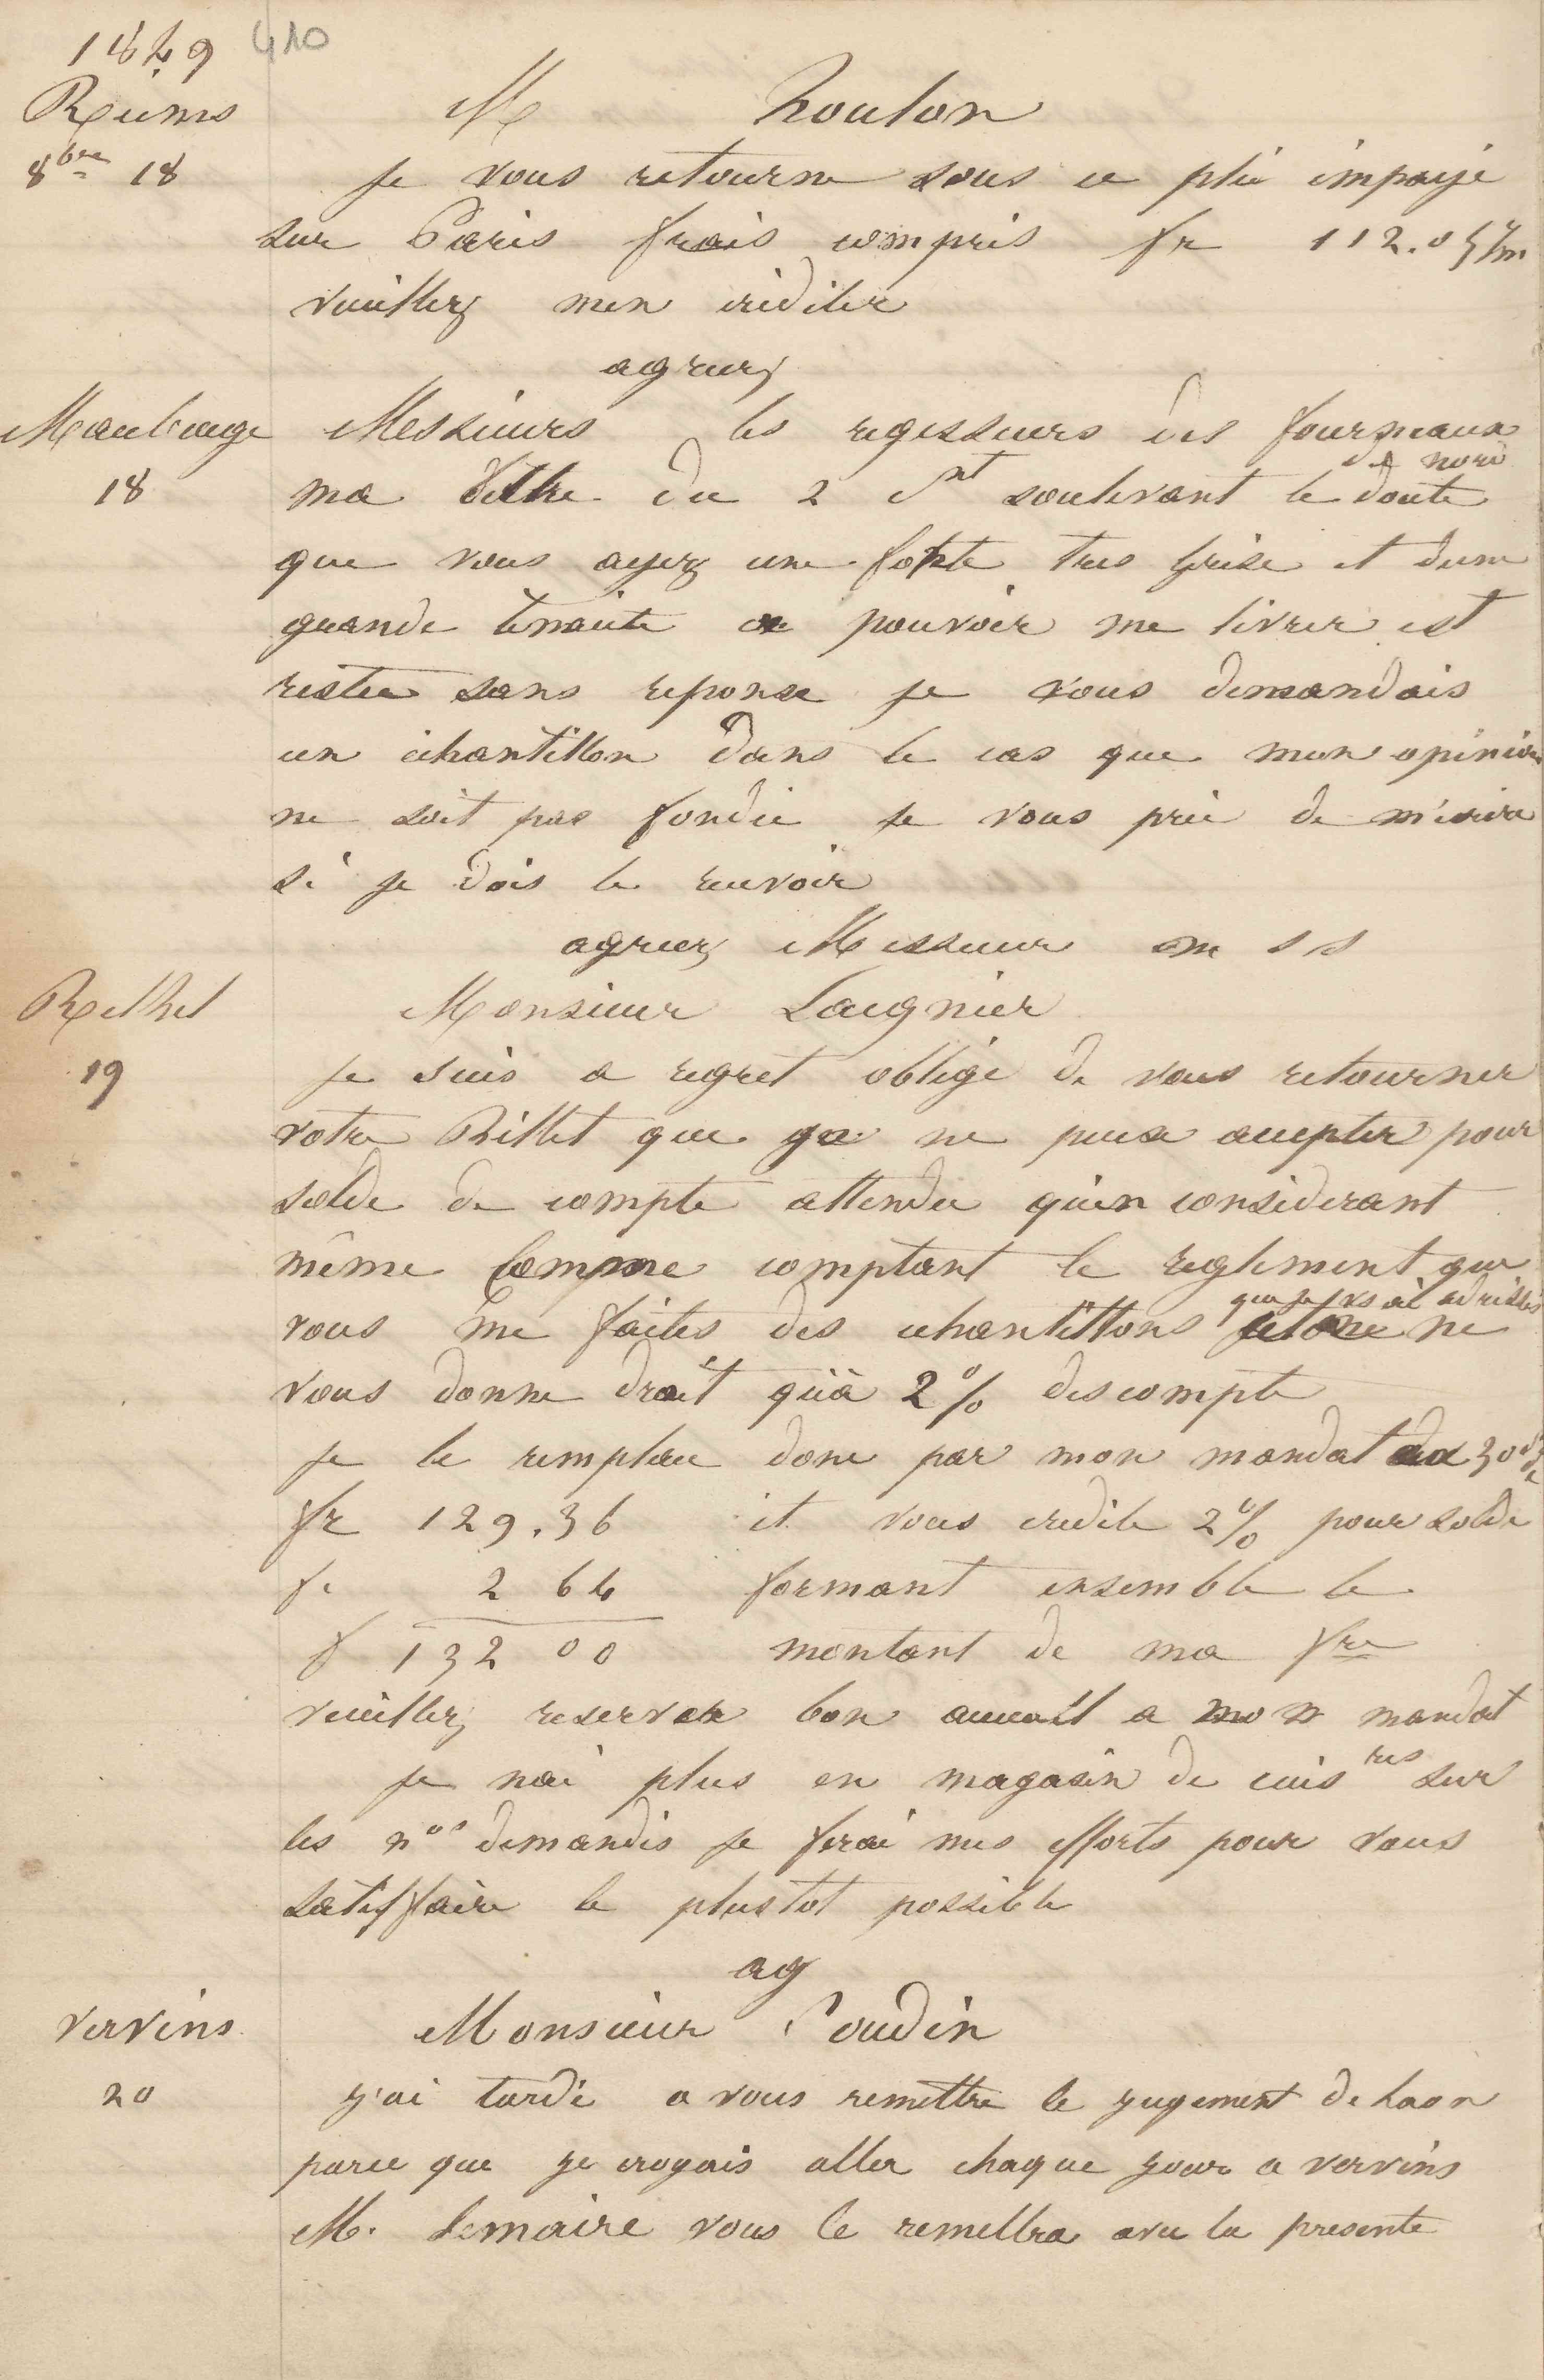 1849 410
Reims
8bre 18
M Houlon
je vous retourne sous ce plie impayé
sur Paris frais compris fr 112.05
veuillez men créditer
agreez
Maubeuge
18
Messieurs les regisseurs des fourneaux
du nord
ma lettre du 2 ct soulevant le doute
que vous ayez une fonte tres grise et dune
grande tenacite a pouvoir me livrer est
restee sans reponse je vous demandais
un échantillon dans le cas que mon opinion
ne soit pas fondée je vous prie de m'écrire
si je dois le recevoir
agreez Messieur m s s
Rethel
19
Monsieur Laignier
je suis a regret obligé de vous retourner
votre Billet que je ne peux accepter pour
solde de compte attendu qu'en considerant
même comme comptant le reglement que
que je vs ai adressés
vous me faites des echantillons ne
vous donne droit qu'à 2% descompte
je le remplace donc par mon mandat au 30 de
fr 129.36 et vous credite 2% pour solde
fr 2 64 formant ensemble le
f 132 00 montant de ma fre
veuillez reserver bon accueil a mon mandat
je nai plus en magasin de cuisres sur
les nos demandés je ferai mes efforts pour vous
satisffaire le plustot possible
ag
Vervins
20
Monsieur Soudin
j'ai tardé a vous remettre le jugement de Laon
parce que je croyais aller chaque jour a vervins
M. Lemaire vous le remettra avec la presente